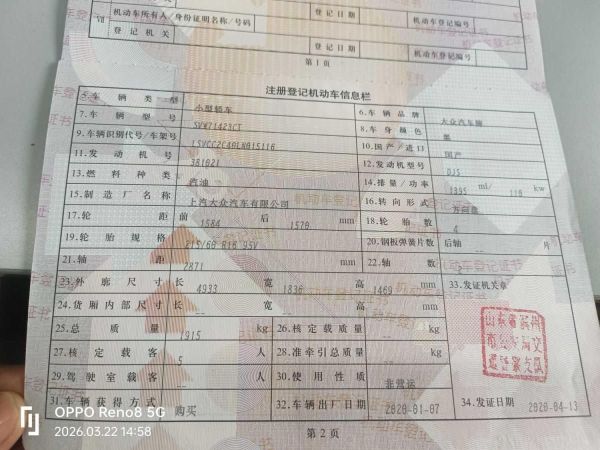 机动车所有人/身份证明名称/号码
登记机关 登记日期 机动车登记编号
第1页
注册登记机动车信息栏
5.车辆类型 小型轿车 6.车辆品牌 大众汽车牌
7.车辆型号 8.车身颜色 黑
9.车辆识别代号/车架号 10.国产/进口 国产
11.发动机号 381021 12.发动机型号 DJS
13.燃料种类 汽油 14.排量/功率 1395 ml/ 110 kw
15.制造厂名称 上汽大众汽车有限公司 16.转向形式 方向盘
17.轮距 前 1584 后 1570 mm 18.轮胎数 4
19.轮胎规格 215/60 R16 95V 20.钢板弹簧片数 后轴 -- 片
21.轴距 2871 mm 22.轴数 2
23.外廓尺寸 长 4933 宽 1836 高 1469 mm 33.发证机关章
24.货厢内部尺寸 长 -- 宽 -- 高 -- mm
25.总质量 1915 kg 26.核定载质量 -- kg
27.核定载客 5 人 28.准牵引总质量 -- kg
29.驾驶室载客 -- 人 30.使用性质 非营运
31.车辆获得方式 购买 32.车辆出厂日期 2020-01-07 34.发证日期 2020-04-13
第2页
OPPO Reno8 5G
2026.03.22 14:58